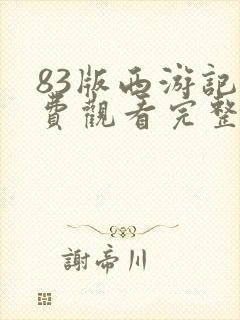 83版西游記
費觀看完整
謝帝川